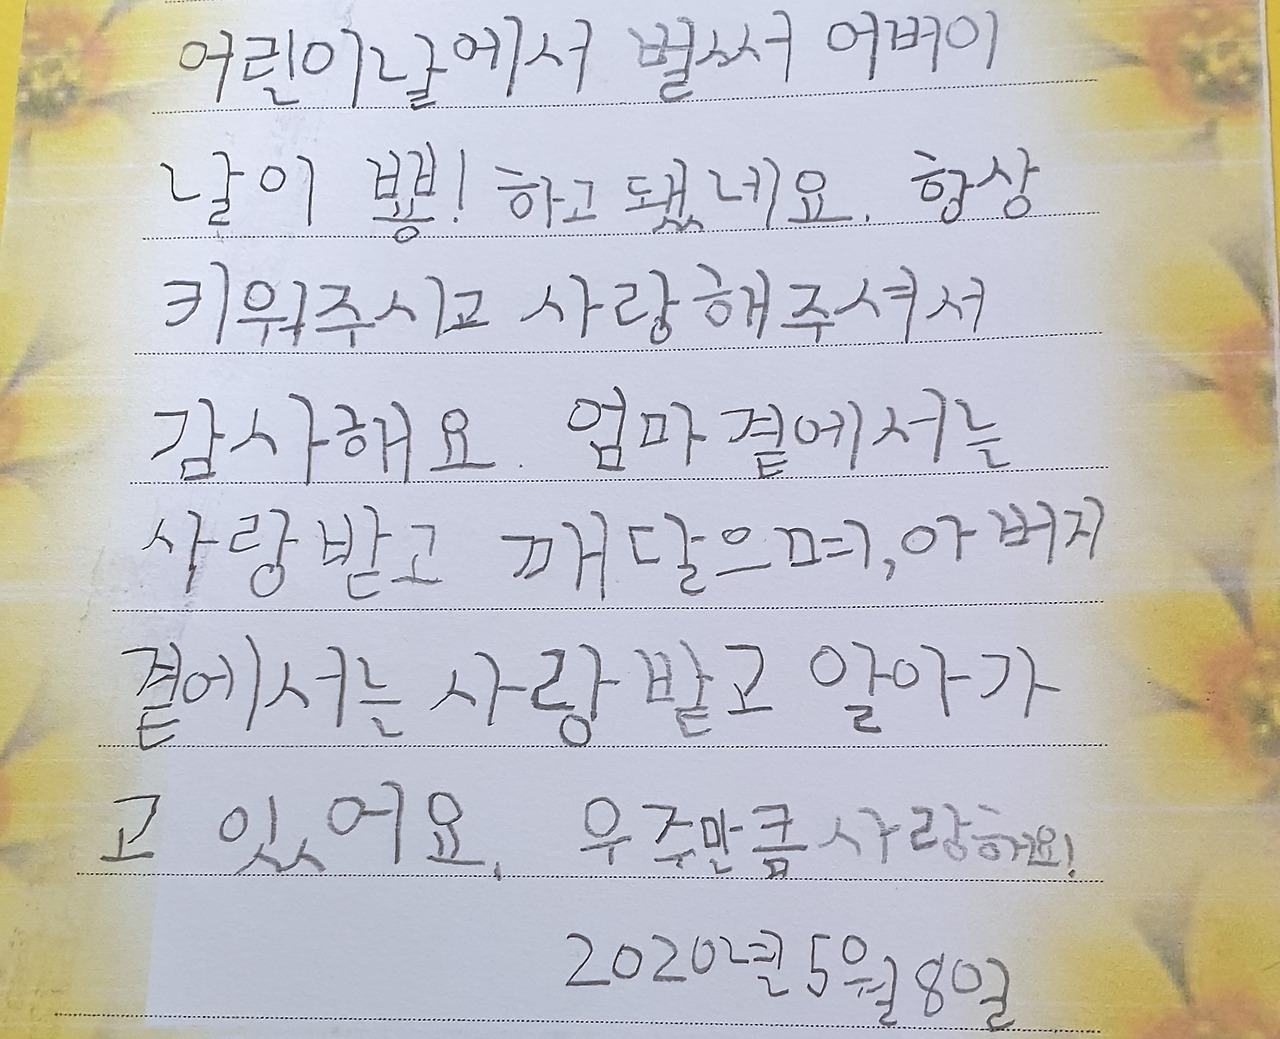 어린이날에서 벌써 어버이
날이 뿅! 하고 됐네요. 항상
키워주시고 사랑해주셔서
감사해요. 엄마 곁에서는
사랑받고 깨달으며, 아버지
곁에서는 사랑받고 알아가
고 있어요. 우주만큼 사랑해요!
2020년 5월 8일